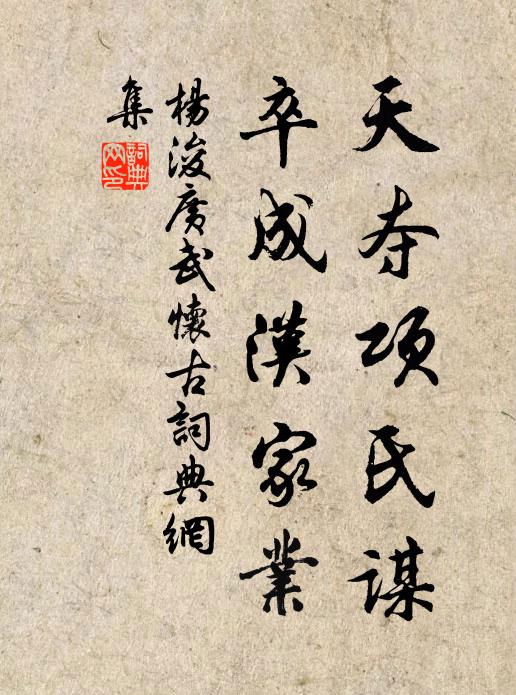 天夺项氏謀
卒成漢家業
楊浚廣武懷古詞典網
集
詞典
网印